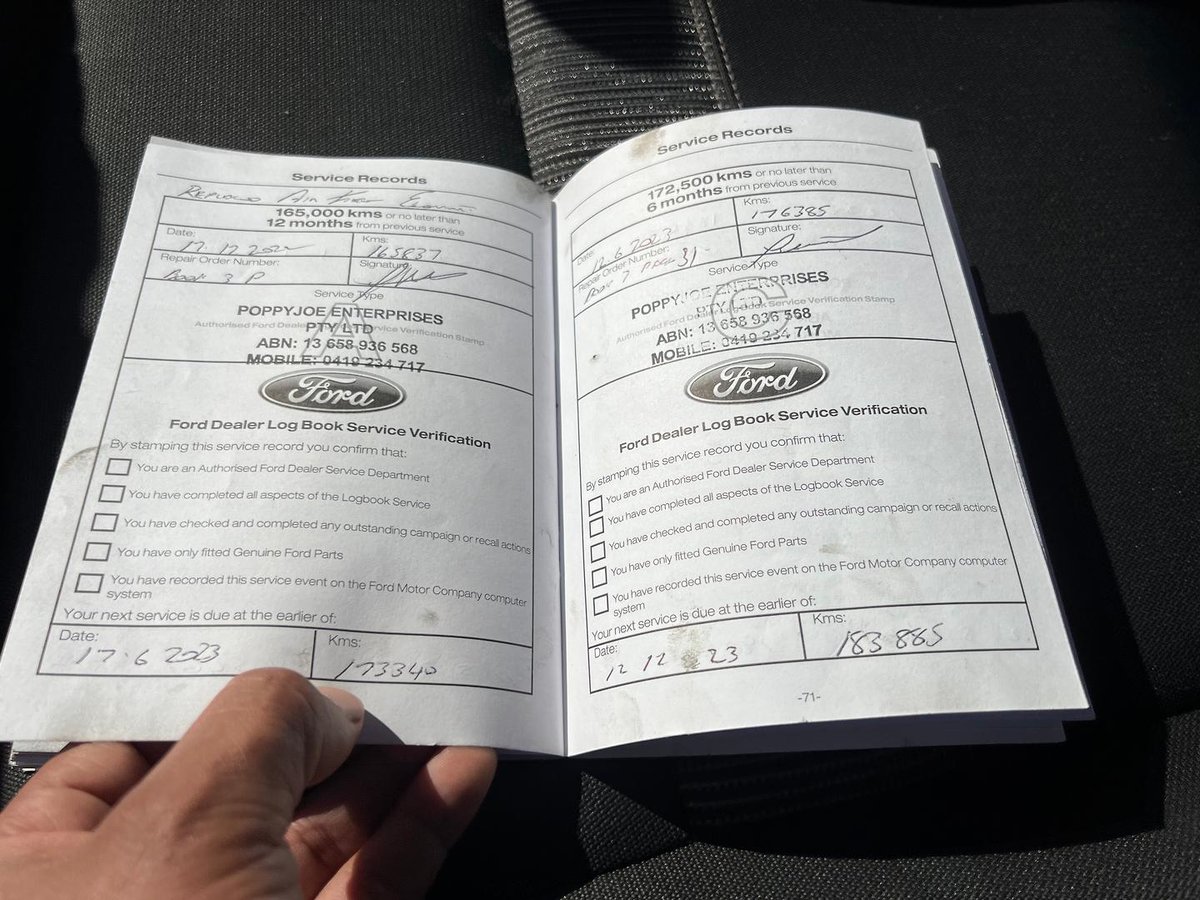 Service Records
Replaced Air Filter Element
165,000 kms or no later than
12 months from previous service
Date:
17.12.2022
Kms:
165837
Repair Order Number:
Book 3 P
Signature:
Service Type
A
POPPYJOE ENTERPRISES
Authorised Ford Dealer Service Verification Stamp
PTY LTD
ABN: 13 658 936 568
MOBILE: 0419 234 717
Ford
Ford Dealer Log Book Service Verification
By stamping this service record you confirm that:
You are an Authorised Ford Dealer Service Department
You have completed all aspects of the Logbook Service
You have checked and completed any outstanding campaign or recall actions
You have only fitted Genuine Ford Parts
You have recorded this service event on the Ford Motor Company computer
system
Your next service is due at the earlier of:
Date:
17.6 2023
Kms:
173340
Service Records
172,500 kms or no later than
6 months from previous service
Date:
12.6 2023
Kms:
176385
Repair Order Number:
Book 7 Page 31
Signature:
Service Type
C
POPPYJOE ENTERPRISES
PTY LTD
Authorised Ford Dealer Log Book Service Verification Stamp
ABN: 13 658 936 568
MOBILE: 0419 234 717
Ford
Ford Dealer Log Book Service Verification
By stamping this service record you confirm that:
You are an Authorised Ford Dealer Service Department
You have completed all aspects of the Logbook Service
You have checked and completed any outstanding campaign or recall actions
You have only fitted Genuine Ford Parts
You have recorded this service event on the Ford Motor Company computer
system
Your next service is due at the earlier of:
Date:
12 12 23
Kms:
183 885
-71-